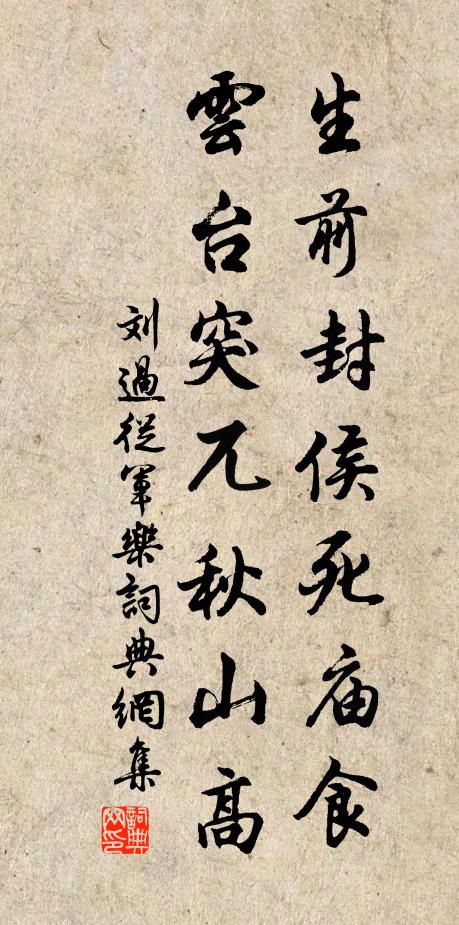 生前封侯死庙食
雲台突兀秋山高
刘過從軍樂詞典網集
詞典网印